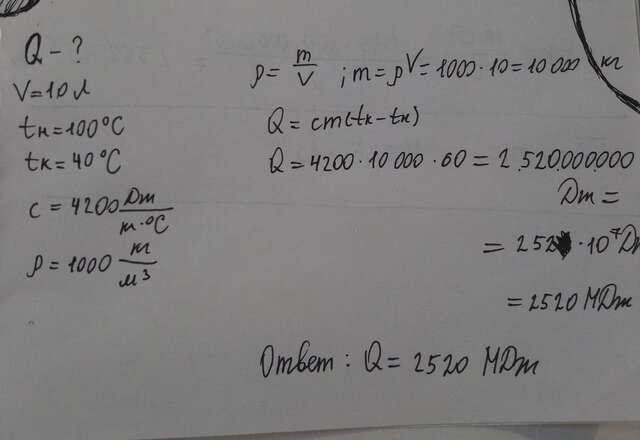 Q - ?
V = 10 л
tн = 100°C
tк = 40°C
c = 4200 Дж/кг·°C
ρ = 1000 кг/м³
ρ = m/V ; m = ρV = 1000 · 10 = 10 000 кг
Q = cm(tк - tн)
Q = 4200 · 10 000 · 60 = 2.520.000.000
Дж =
= 252 · 10⁷ Дж
= 2520 МДж
Ответ : Q = 2520 МДж